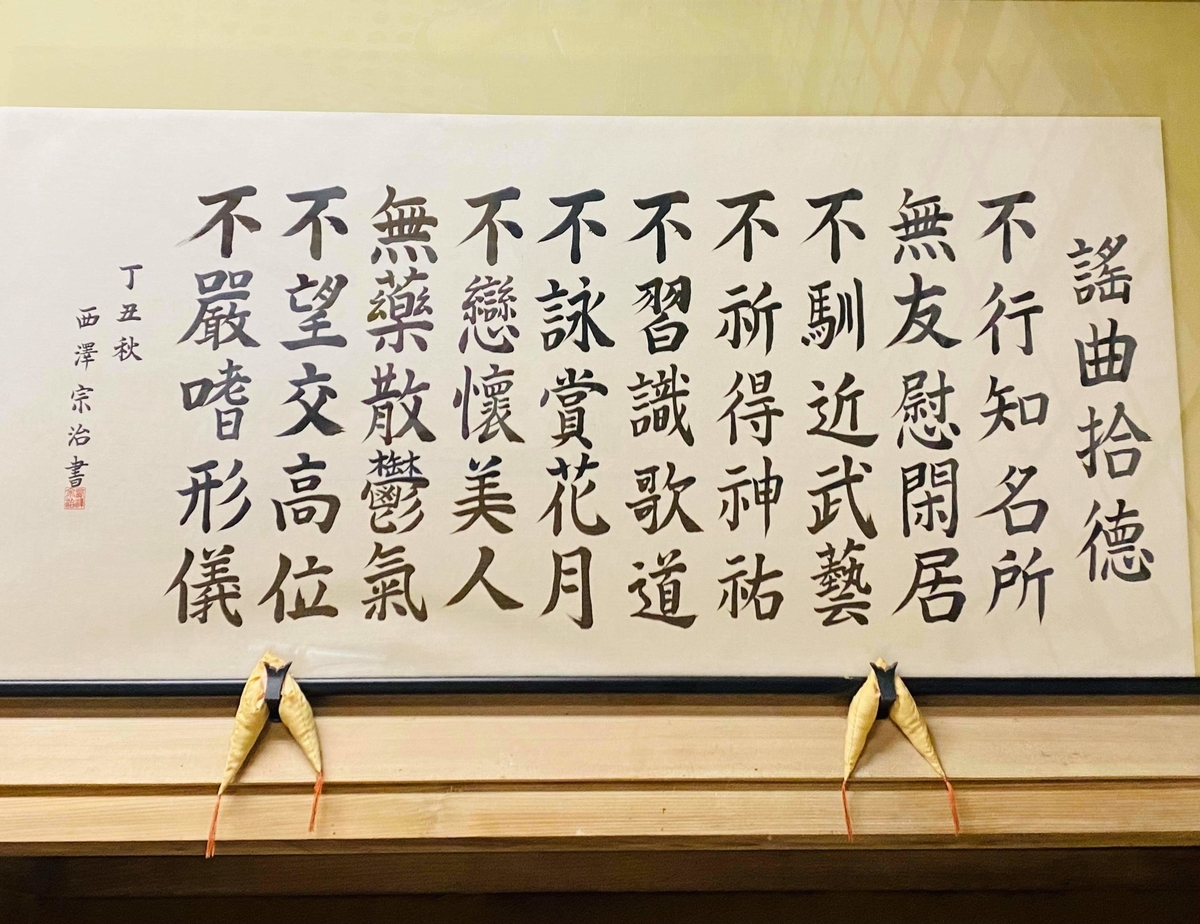 謡曲拾德
不行知名所
無友慰閑居
不馴近武藝
不祈得神祐
不習識歌道
不詠賞花月
不戀懷美人
無藥散鬱氣
不望交高位
不嚴嗜形儀
丁丑秋
西澤宗治書